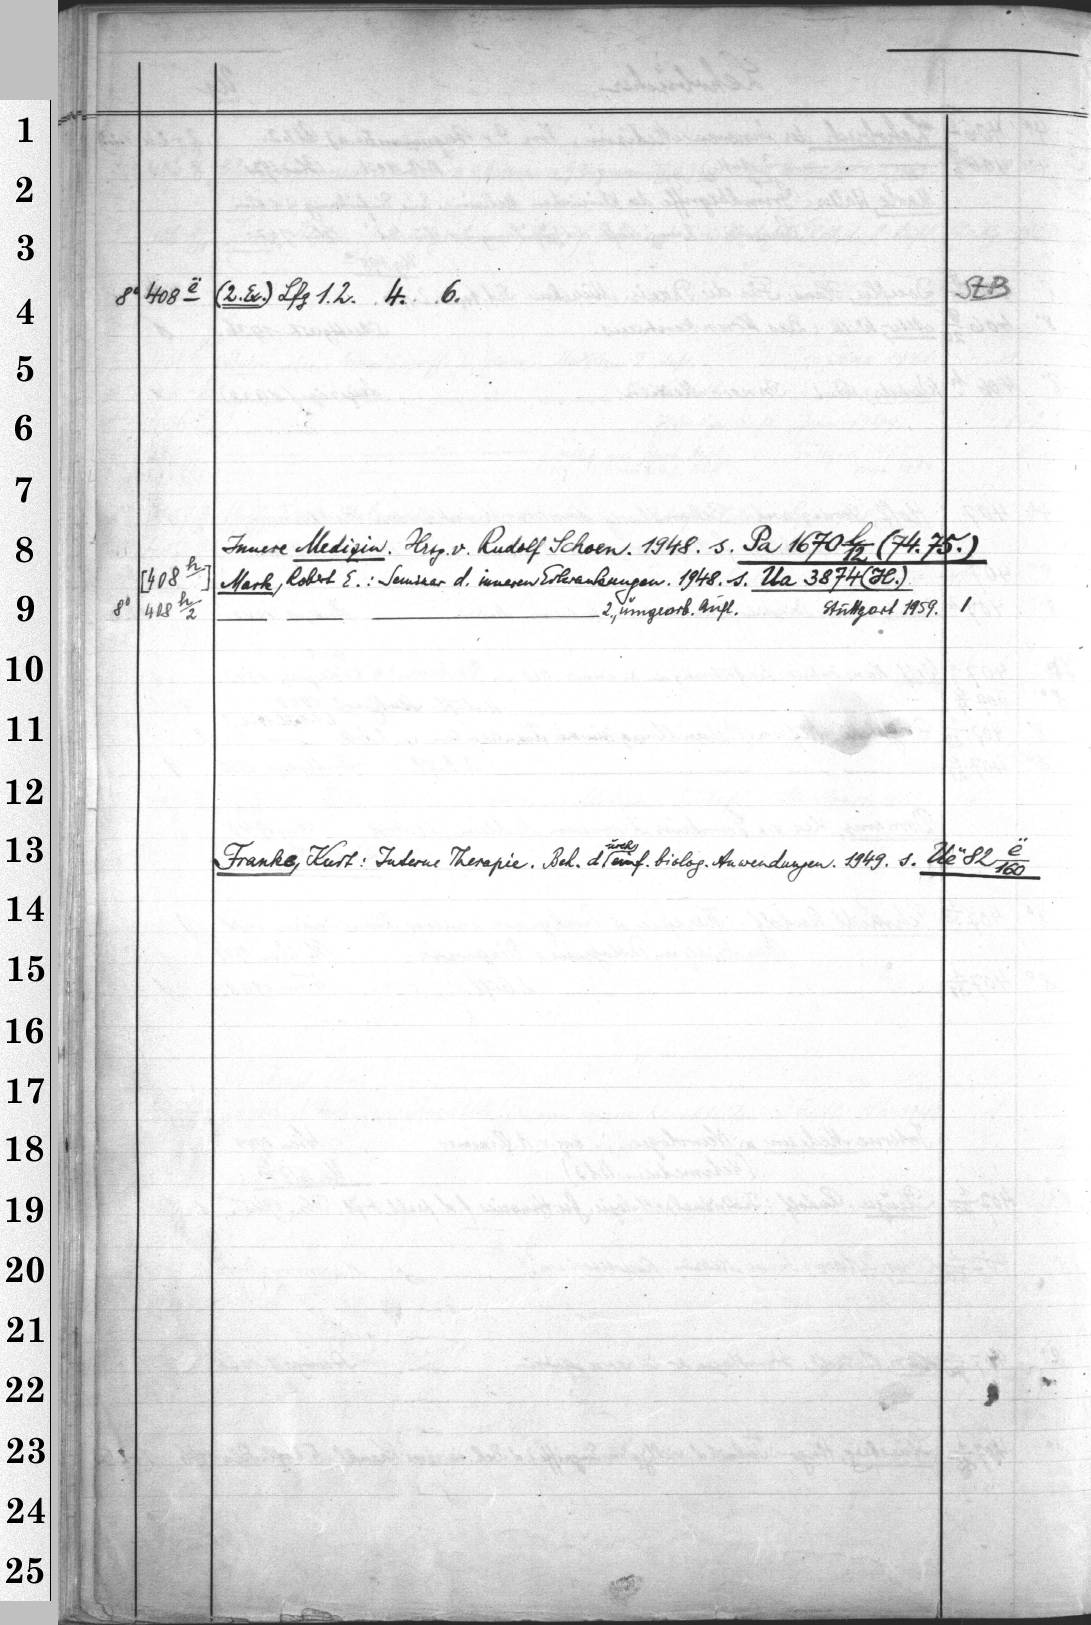 1
2
3
8° 408 ë (2. Ex.) Lfg 1.2. 4. 6. StB
4
5
6
7
8 Innere Medizin. Hrsg. v. Rudolf Schoen. 1948. s. Pa 1670 h/12 (74.75.)
[408 h] Mark, Robert E.: Seminar d. inneren Erkrankungen. 1948. s. Ua 3874 (H.)
9 8° 408 h/2 2., umgearb. Aufl. Stuttgart 1959. 1
10
11
12
13 Franke, Kurt: Interne Therapie. Beh. durch einf. biolog. Anwendungen. 1949. s. Uë 82 ë/160
14
15
16
17
18
19
20
21
22
23
24
25